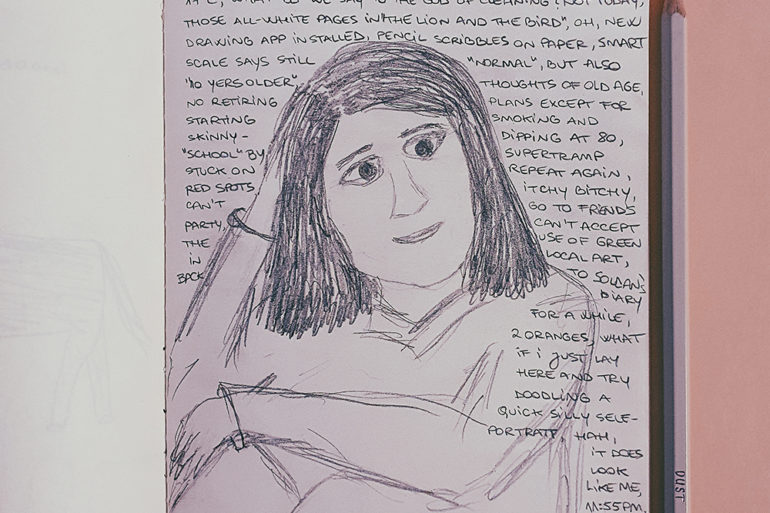 WHAT DO WE SAY TO THE GOD OF CLEANING? NOT TODAY,
THOSE ALL-WHITE PAGES IN "THE LION AND THE BIRD", OH, NEW
DRAWING APP INSTALLED, PENCIL SCRIBBLES ON PAPER, SMART
SCALE SAYS STILL "NORMAL", BUT ALSO
"10 YERS OLDER", THOUGHTS OF OLD AGE,
NO RETIRING PLANS EXCEPT FOR
STARTING SMOKING AND
SKINNY- DIPPING AT 80,
"SCHOOL" BY SUPERTRAMP
STUCK ON REPEAT AGAIN,
RED SPOTS ITCHY BITCHY,
CAN'T GO TO FRIEND'S
PARTY, CAN'T ACCEPT
THE USE OF GREEN
IN LOCAL ART,
BACK TO SOLDAN'S
DIARY
FOR A WHILE,
2 ORANGES, WHAT
IF I JUST LAY
HERE AND TRY
DOODLING A
QUICK SILLY SELF-
PORTRAIT, HAH,
IT DOES
LOOK
LIKE ME,
11:55PM.
DUST